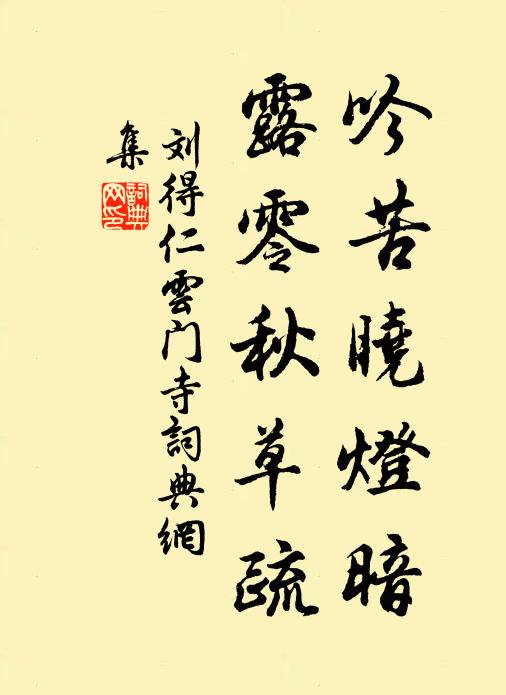 吟苦曉燈暗
露零秋草疏
刘得仁雲门寺詞典網
集
詞典网印